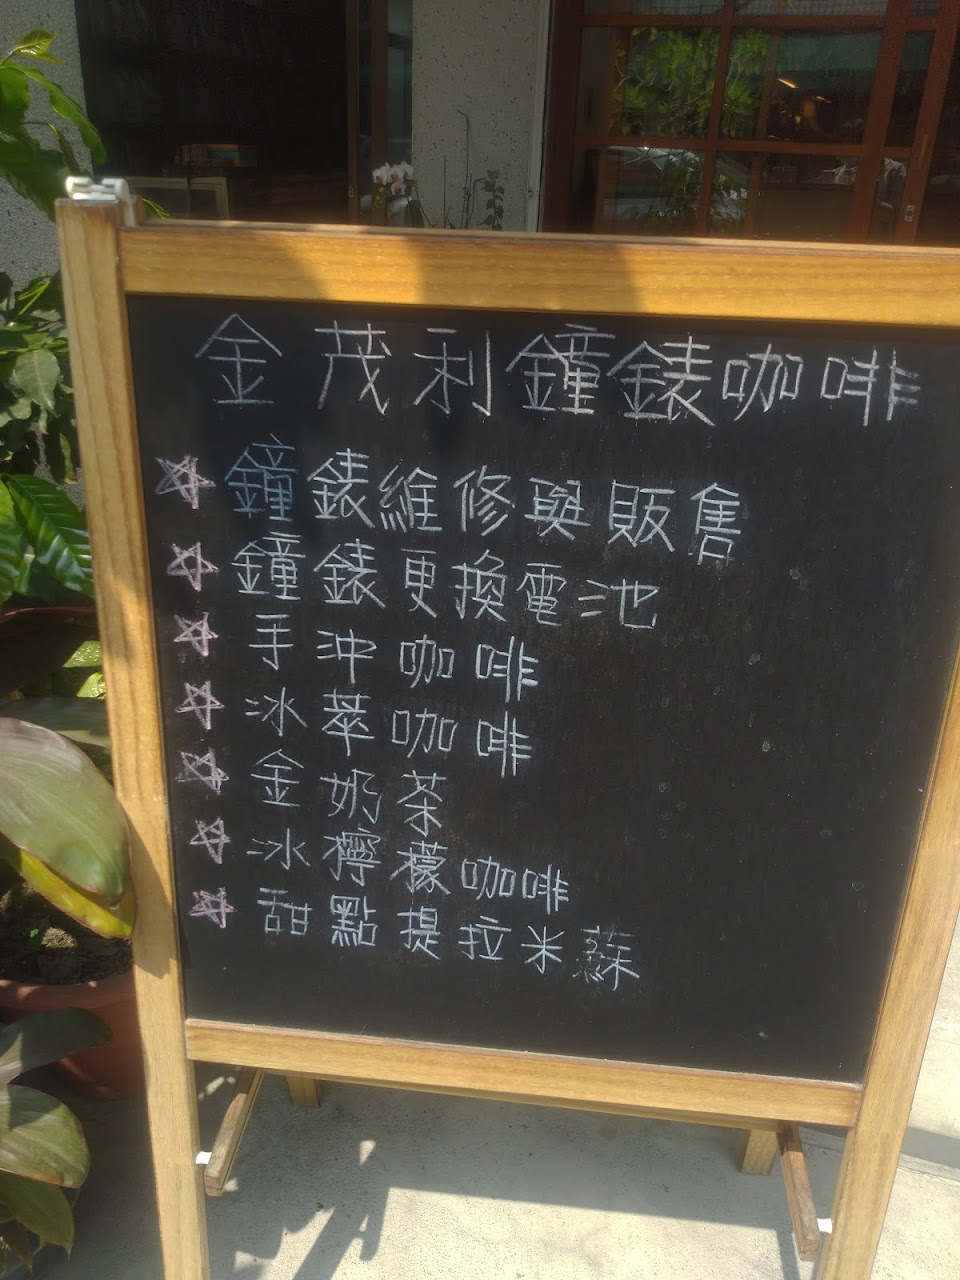 金茂利鐘錶咖啡
☆鐘錶維修與販售
☆鐘錶更換電池
☆手沖咖啡
☆冰萃咖啡
☆金奶茶
☆冰檸檬咖啡
☆甜點提拉米蘇